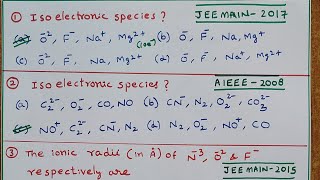 ① Iso electronic species ? JEE MAIN - 2017
(a) O²⁻, F⁻, Na⁺, Mg²⁺ (10e⁻) (b) O⁻, F⁻, Na, Mg⁺
(c) O²⁻, F⁻, Na, Mg²⁺ (d) O⁻, F⁻, Na⁺, Mg²⁺
② Iso electronic species ? AIEEE - 2008
(a) C₂²⁻, O₂⁻, CO, NO (b) CN⁻, N₂, O₂²⁻, C₂²⁻
(c) NO⁺, C₂²⁻, CN⁻, N₂ (d) N₂, O₂⁻, NO⁺, CO
③ The ionic radii (in Å) of N⁻³, O²⁻ & F⁻
respectively are JEE MAIN - 2015